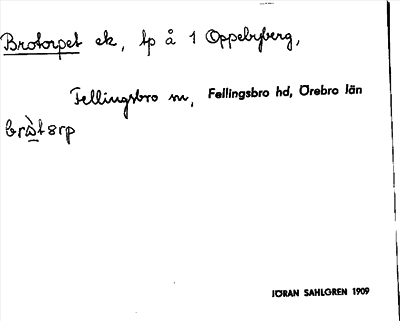 Brotorpet ek, tp å 1 Oppebyberg,
Fellingsbro sn, Fellingsbro hd, Örebro län
JÖRAN SAHLGREN 1909